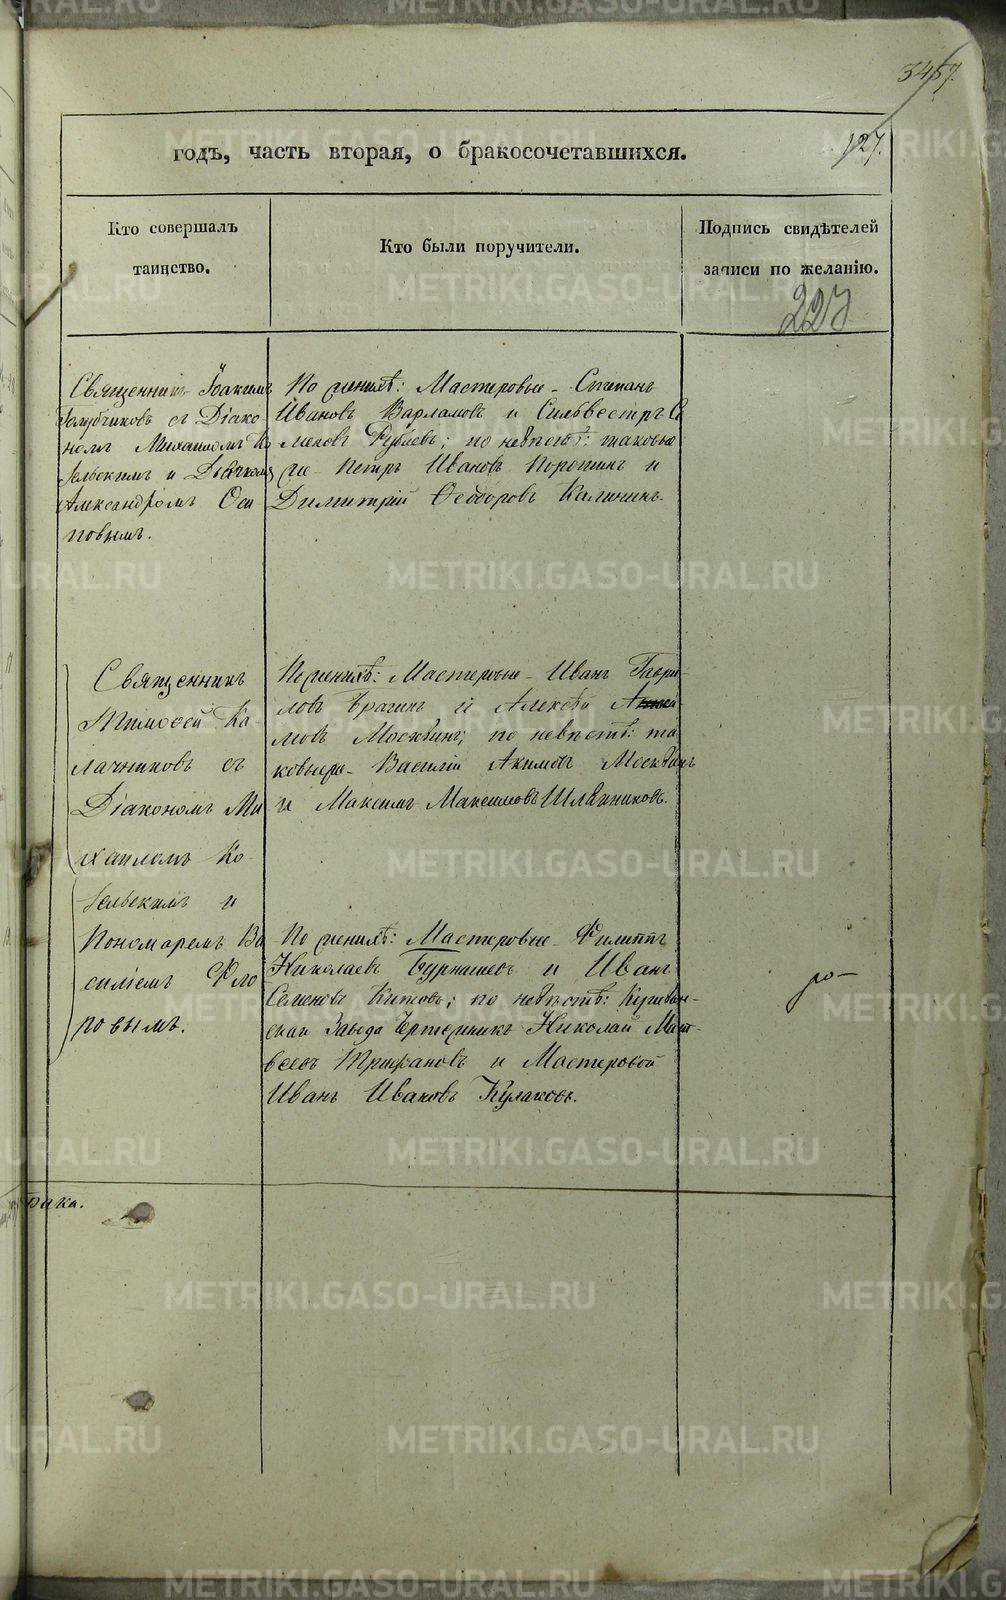 3457.
годъ, часть вторая, о бракосочетавшихся.
127.
Кто совершалъ
таинство.
Кто были поручители.
Подпись свидѣтелей
записи по желанію.
227
Священникъ Іоакимъ
Голубчиковъ съ Діако-
номъ Михаиломъ Ко
зельскимъ и Дьячкомъ
Александромъ Оси
повымъ.
По женихѣ: Мастеровые - Степанъ
Ивановъ Варламовъ и Сильвестръ Се
меновъ по невѣстѣ: таковые
же - Петръ Ивановъ и
Димитрій Ѳеодоровъ Калининъ.
Священникъ
Тимоѳей Ка-
лачниковъ съ
Діакономъ Ми
хаиломъ Ко-
зельскимъ и
Пономаремъ Ва
силіемъ Фло
ровымъ.
По женихѣ: Мастеровые - Иванъ Гаври-
ловъ Брагинъ и Алексѣй
мовъ Москвинъ; по невѣстѣ: та
ковые же - Василій Акимовъ Москвинъ
и Максимъ Максимовъ Шляпниковъ.
По женихѣ: Мастеровые - Филиппъ
Николаевъ Бурнашевъ и Иванъ
Семеновъ Китовъ; по невѣстѣ: Кушвин-
скаго Завода Чертежникъ Николай Мат-
вѣевъ Трифановъ и Мастеровой
Иванъ Ивановъ Кулаковъ.
брака.
METRIKI.GASO-URAL.RU